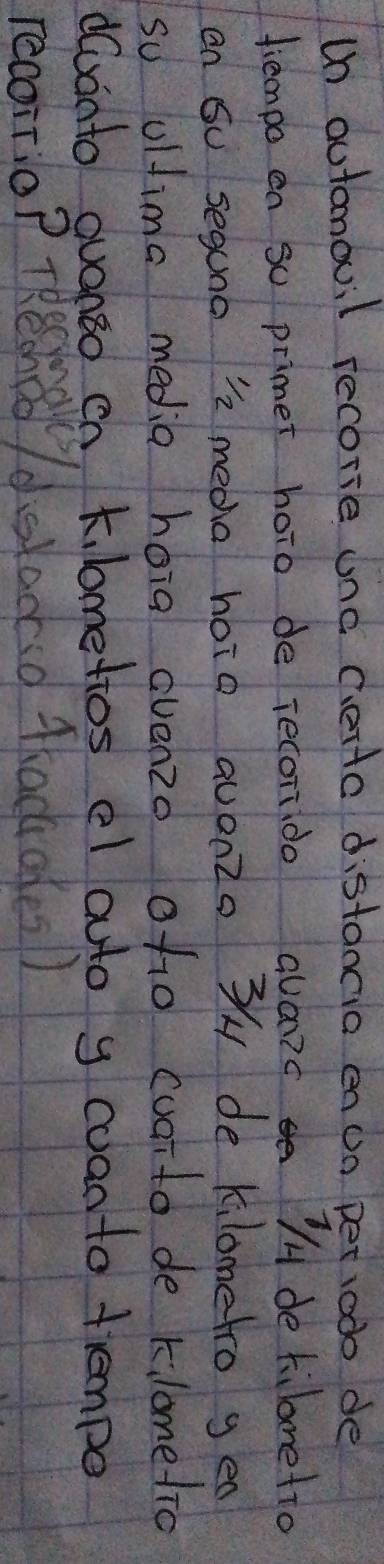 Un automovil recorre una cierta distancia en un periodo de
tiempo en su primer hora de recorrido avanza 1/4 de kilometro
en su seguna 1/2 media hora avanza 3/4 de kilometro y en
su ultima media hora avanza otro cuarto de kilometro
dCuánto avanzo en kilometros el auto y cuanto tiempo
recorrio? Tiempo/distancia fracciones)